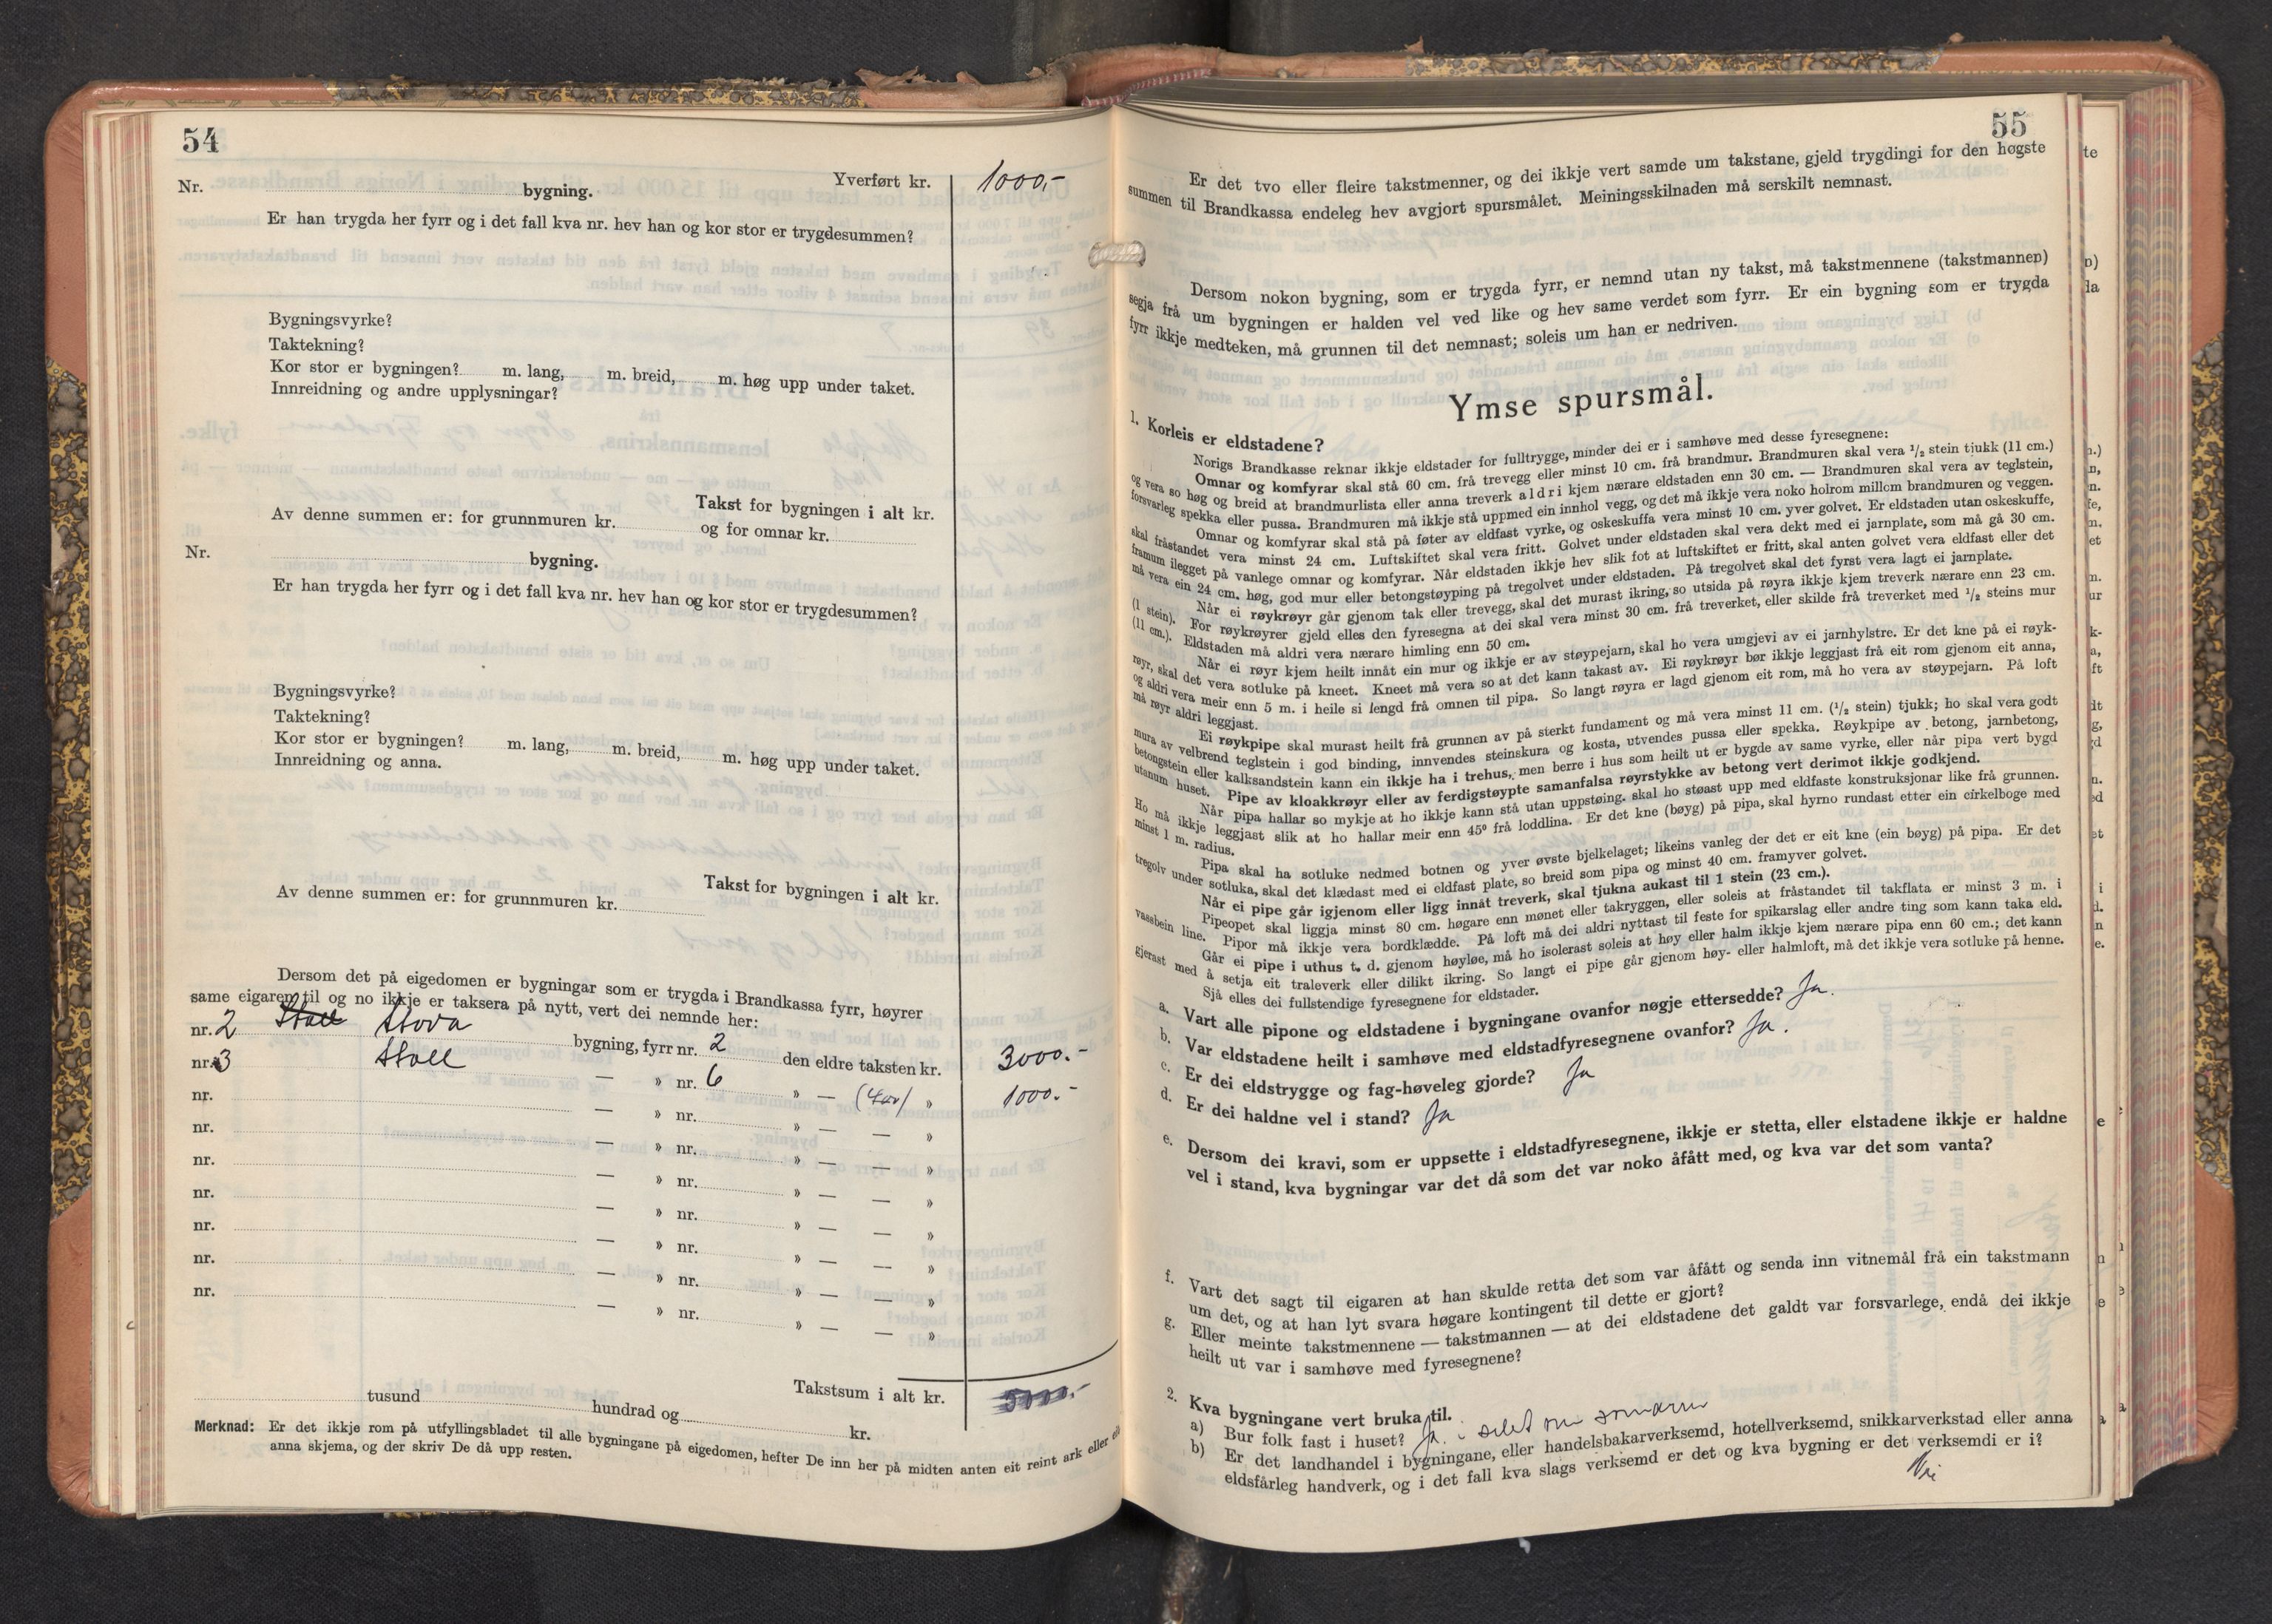 54
Yverført kr. 1000,-
Nr. bygning.
Er han trygda her fyrr og i det fall kva nr. hev han og kor stor er trygdesummen?
Bygningsvyrke?
Taktekning?
Kor stor er bygningen? m. lang, m. breid, m. høg upp under taket.
Innreidning og andre upplysningar?
Takst for bygningen i alt kr.
Av denne summen er: for grunnmuren kr. og for omnar kr.
Nr. bygning.
Er han trygda her fyrr og i det fall kva nr. hev han og kor stor er trygdesummen?
Bygningsvyrke?
Taktekning?
Kor stor er bygningen? m. lang, m. breid, m. høg upp under taket.
Innreidning og anna.
Takst for bygningen i alt kr.
Av denne summen er: for grunnmuren kr.
Dersom det på eigedomen er bygningar som er trygda i Brandkassa fyrr, høyrer
same eigaren til og no ikkje er taksera på nytt, vert dei nemnde her:
nr. 2 Stall Stova bygning, fyrr nr. 2 den eldre taksten kr. 3000.-
nr. 3 Stall — » nr. 6 » — » 1000.-
nr. — » nr. » — — »
nr. — » nr. » — — »
nr. — » nr. » — — »
nr. — » nr. » — — »
nr. — » nr. » — — »
nr. — » nr. » — — »
nr. — » nr. » — — »
Takstsum i alt kr. 5000.-
tusund hundrad og kr.
Merknad: Er det ikkje rom på utfyllingsbladet til alle bygningane på eigedomen, hefter De inn her på midten anten eit reint ark eller
anna skjema, og der skriv De då upp resten.
55
Er det tvo eller fleire takstmenner, og dei ikkje vert samde um takstane, gjeld trygdingi for den høgste
summen til Brandkassa endeleg hev avgjort spursmålet. Meiningsskilnaden må serskilt nemnast.
Dersom nokon bygning, som er trygda fyrr, er nemnd utan ny takst, må takstmennene (takstmannen)
segja frå um bygningen er halden vel ved like og hev same verdet som fyrr. Er ein bygning som er trygda
fyrr ikkje medteken, må grunnen til det nemnast; soleis um han er nedriven.
Ymse spursmål.
1. Korleis er eldstadene?
Norigs Brandkasse reknar ikkje eldstader for fulltrygge, minder dei er i samhøve med desse fyresegnene:
Omnar og komfyrar skal stå 60 cm. frå trevegg eller minst 10 cm. frå brandmur. Brandmuren skal vera 1/2 stein tjukk (11 cm.)
og vera so høg og breid at brandmurlista eller anna treverk aldri kjem nærare eldstaden enn 30 cm. — Brandmuren skal vera av teglstein,
forsvarleg spekka eller pussa. Brandmuren må ikkje stå uppmed ein innhol vegg, og det må ikkje vera noko holrom millom brandmuren og veggen.
Omnar og komfyrar skal stå på føter av eldfast vyrke, og oskeskuffa vera minst 10 cm. yver golvet. Er eldstaden utan oskeskuffe,
skal fråstandet vera minst 24 cm. Luftskiftet skal vera fritt. Golvet under eldstaden skal vera dekt med ei jarnplate, som må gå 30 cm.
framum ilegget på vanlege omnar og komfyrar. Når eldstaden ikkje hev slik fot at luftskiftet er fritt, skal anten golvet vera eldfast eller det
må vera ein 24 cm. høg, god mur eller betongstøyping på tregolvet under eldstaden. På tregolvet skal det fyrst vera lagt ei jarnplate.
Når ei røykrøyr går gjenom tak eller trevegg, skal det murast ikring, so utsida på røyra ikkje kjem treverk nærare enn 23 cm.
(1 stein). For røykrøyrer gjeld elles den fyresegna at dei skal vera minst 30 cm. frå treverket, eller skilde frå treverket med 1/2 steins mur
(11 cm.). Eldstaden må aldri vera nærare himling enn 50 cm.
Når ei røyr kjem heilt innåt ein mur og ikkje er av støypejarn, skal ho vera umgjevi av ei jarnhylstre. Er det kne på ei røyk-
røyr, skal det vera sotluke på kneet. Kneet må vera so at det kann takast av. Ei røykrøyr bør ikkje leggjast frå eit rom gjenom eit anna,
og aldri vera meir enn 5 m. i heile si lengd frå omnen til pipa. So langt røyra er lagd gjenom eit rom, må ho vera av støypejarn. På loft
må røyr aldri leggjast.
Ei røykpipe skal murast heilt frå grunnen av på sterkt fundament og må vera minst 11 cm. (1/2 stein) tjukk; ho skal vera godt
mura av velbrend teglstein i god binding, innvendes steinskura og kosta, utvendes pussa eller spekka. Røykpipe av betong, jarnbetong,
betongstein eller kalksandstein kann ein ikkje ha i trehus, men berre i hus som heilt ut er bygde av same vyrke, eller når pipa vert bygd
utanum huset. Pipe av kloakkrøyr eller av ferdigstøypte samanfalsa røyrstykke av betong vert derimot ikkje godkjend.
Når pipa hallar so mykje at ho ikkje kann stå utan uppstøing. skal ho støast upp med eldfaste konstruksjonar like frå grunnen.
Ho må ikkje leggjast slik at ho hallar meir enn 45° frå loddlina. Er det kne (bøyg) på pipa, skal hyrno rundast etter ein cirkelboge med
minst 1 m. radius.
Pipa skal ha sotluke nedmed botnen og yver øvste bjelkelaget; likeins vanleg der det er eit kne (ein bøyg) på pipa. Er det
tregolv under sotluka, skal det klædast med ei eldfast plate, so breid som pipa og minst 40 cm. framyver golvet.
Når ei pipe går igjenom eller ligg innåt treverk, skal tjukna aukast til 1 stein (23 cm.).
Pipeopet skal liggja minst 80 cm. høgare enn mønet eller takryggen, eller soleis at fråstandet til takflata er minst 3 m. i
vassbein line. Pipor må ikkje vera bordklædde. På loft må dei aldri nyttast til feste for spikarslag eller andre ting som kann taka eld.
Går ei pipe i uthus t. d. gjenom høyløe, må ho isolerast soleis at høy eller halm ikkje kjem nærare pipa enn 60 cm.; det kann
gjerast med å setja eit traleverk eller dilikt ikring. So langt ei pipe går gjenom høy- eller halmloft, må det ikkje vera sotluke på henne.
Sjå elles dei fullstendige fyresegnene for eldstader.
a. Vart alle pipone og eldstadene i bygningane ovanfor nøgje ettersedde? Ja.
b. Var eldstadene heilt i samhøve med eldstadfyresegnene ovanfor? Ja.
c. Er dei eldstrygge og fag-høveleg gjorde? Ja
d. Er dei haldne vel i stand? Ja
e. Dersom dei kravi, som er uppsette i eldstadfyresegnene, ikkje er stetta, eller elstadene ikkje er haldne
vel i stand, kva bygningar var det då som det var noko åfått med, og kva var det som vanta?
f. Vart det sagt til eigaren at han skulde retta det som var åfått og senda inn vitnemål frå ein takstmann
um det, og at han lyt svara høgare kontingent til dette er gjort?
g. Eller meinte takstmennene — takstmannen — at dei eldstadene det galdt var forsvarlege, endå dei ikkje
heilt ut var i samhøve med fyresegnene?
2. Kva bygningane vert bruka til.
a) Bur folk fast i huset? Ja. i selet om sommaren
b) Er det landhandel i bygningane, eller handelsbakarverksemd, hotellverksemd, snikkarverkstad eller anna
eldsfårleg handverk, og i det fall kva slags verksemd er det og kva bygning er det verksemdi er i?
Nei